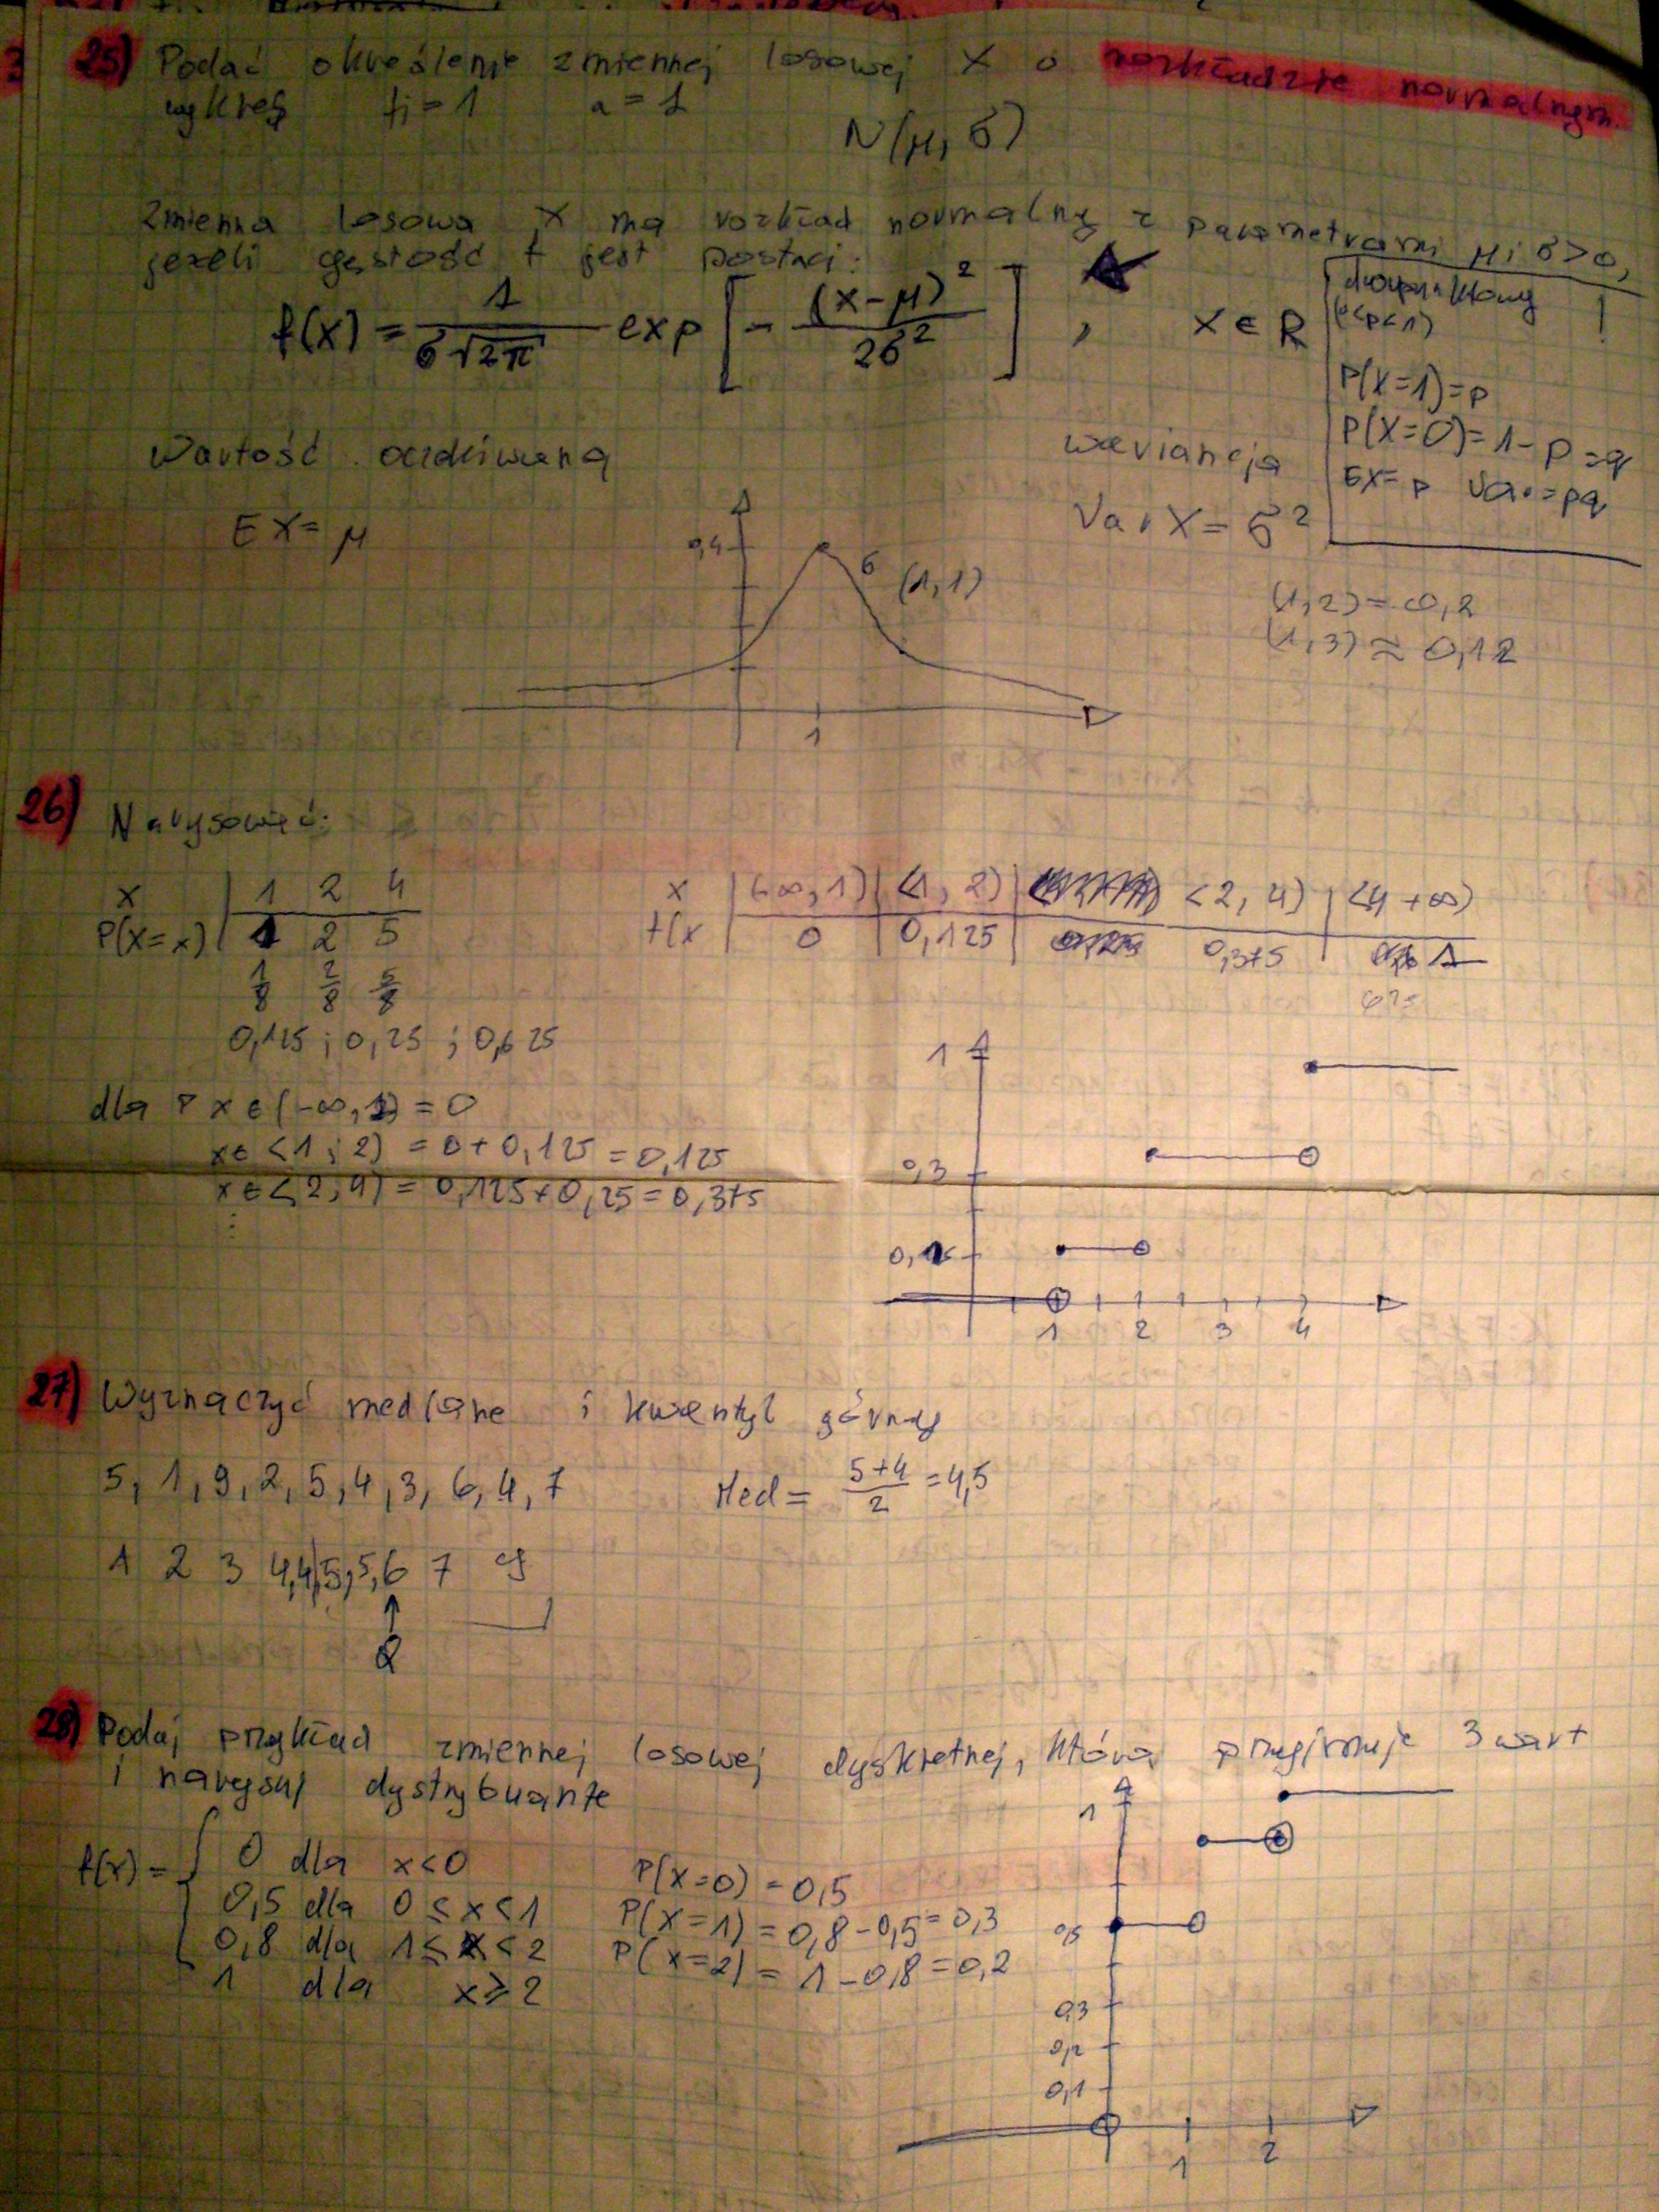 25) Podać określenie zmiennej losowej X o rozkładzie normalnym.
wykres fi=1 a=1
N(μ, б)
Zmienna losowa X ma rozkład normalny z parametrami μ i б>0,
jeżeli gęstość f jest postaci:
f(x) = 1/(б√2π) exp [ - (x-μ)²/2б² ] , x ∈ R
dwupunktowy !
(0<p<1)
P(X=1)=p
P(X=0)=1-p=q
EX=p Var=pq
Wartość oczekiwana
EX=μ
wariancja
Var X = б²
0,4
б (1,1)
1
(1,2)=0,2
(1,3)≈0,12
26) Narysować:
x | 1 2 4
P(X=x) | 1 2 5
1/8 2/8 5/8
0,125 ; 0,25 ; 0,625
x | (-∞, 1) | <1, 2) | <2, 4) | <4 +∞)
f(x | 0 | 0,125 | 0,375 | 1
625
dla P x∈(-∞,1) = 0
x∈<1;2) = 0+0,125=0,125
x∈<2,4) = 0,125+0,25=0,375
⋮
1
0,3
1 2 3 4
27) Wyznaczyć mediane i kwantyl górny
5, 1, 9, 2, 5, 4, 3, 6, 4, 7
Med = (5+4)/2 = 4,5
1 2 3 4,4|5,5,6 7 9
Q
28) Podaj przykład zmiennej losowej dyskretnej, która przyjmuje 3 wart
i narysuj dystrybuante
f(x) = { 0 dla x<0
0,5 dla 0≤x<1
0,8 dla 1≤x<2
1 dla x≥2
P(x=0)=0,5
P(x=1)=0,8-0,5=0,3
P(x=2)=1-0,8=0,2
1
0,5
0,3
0,2
0,1
1 2